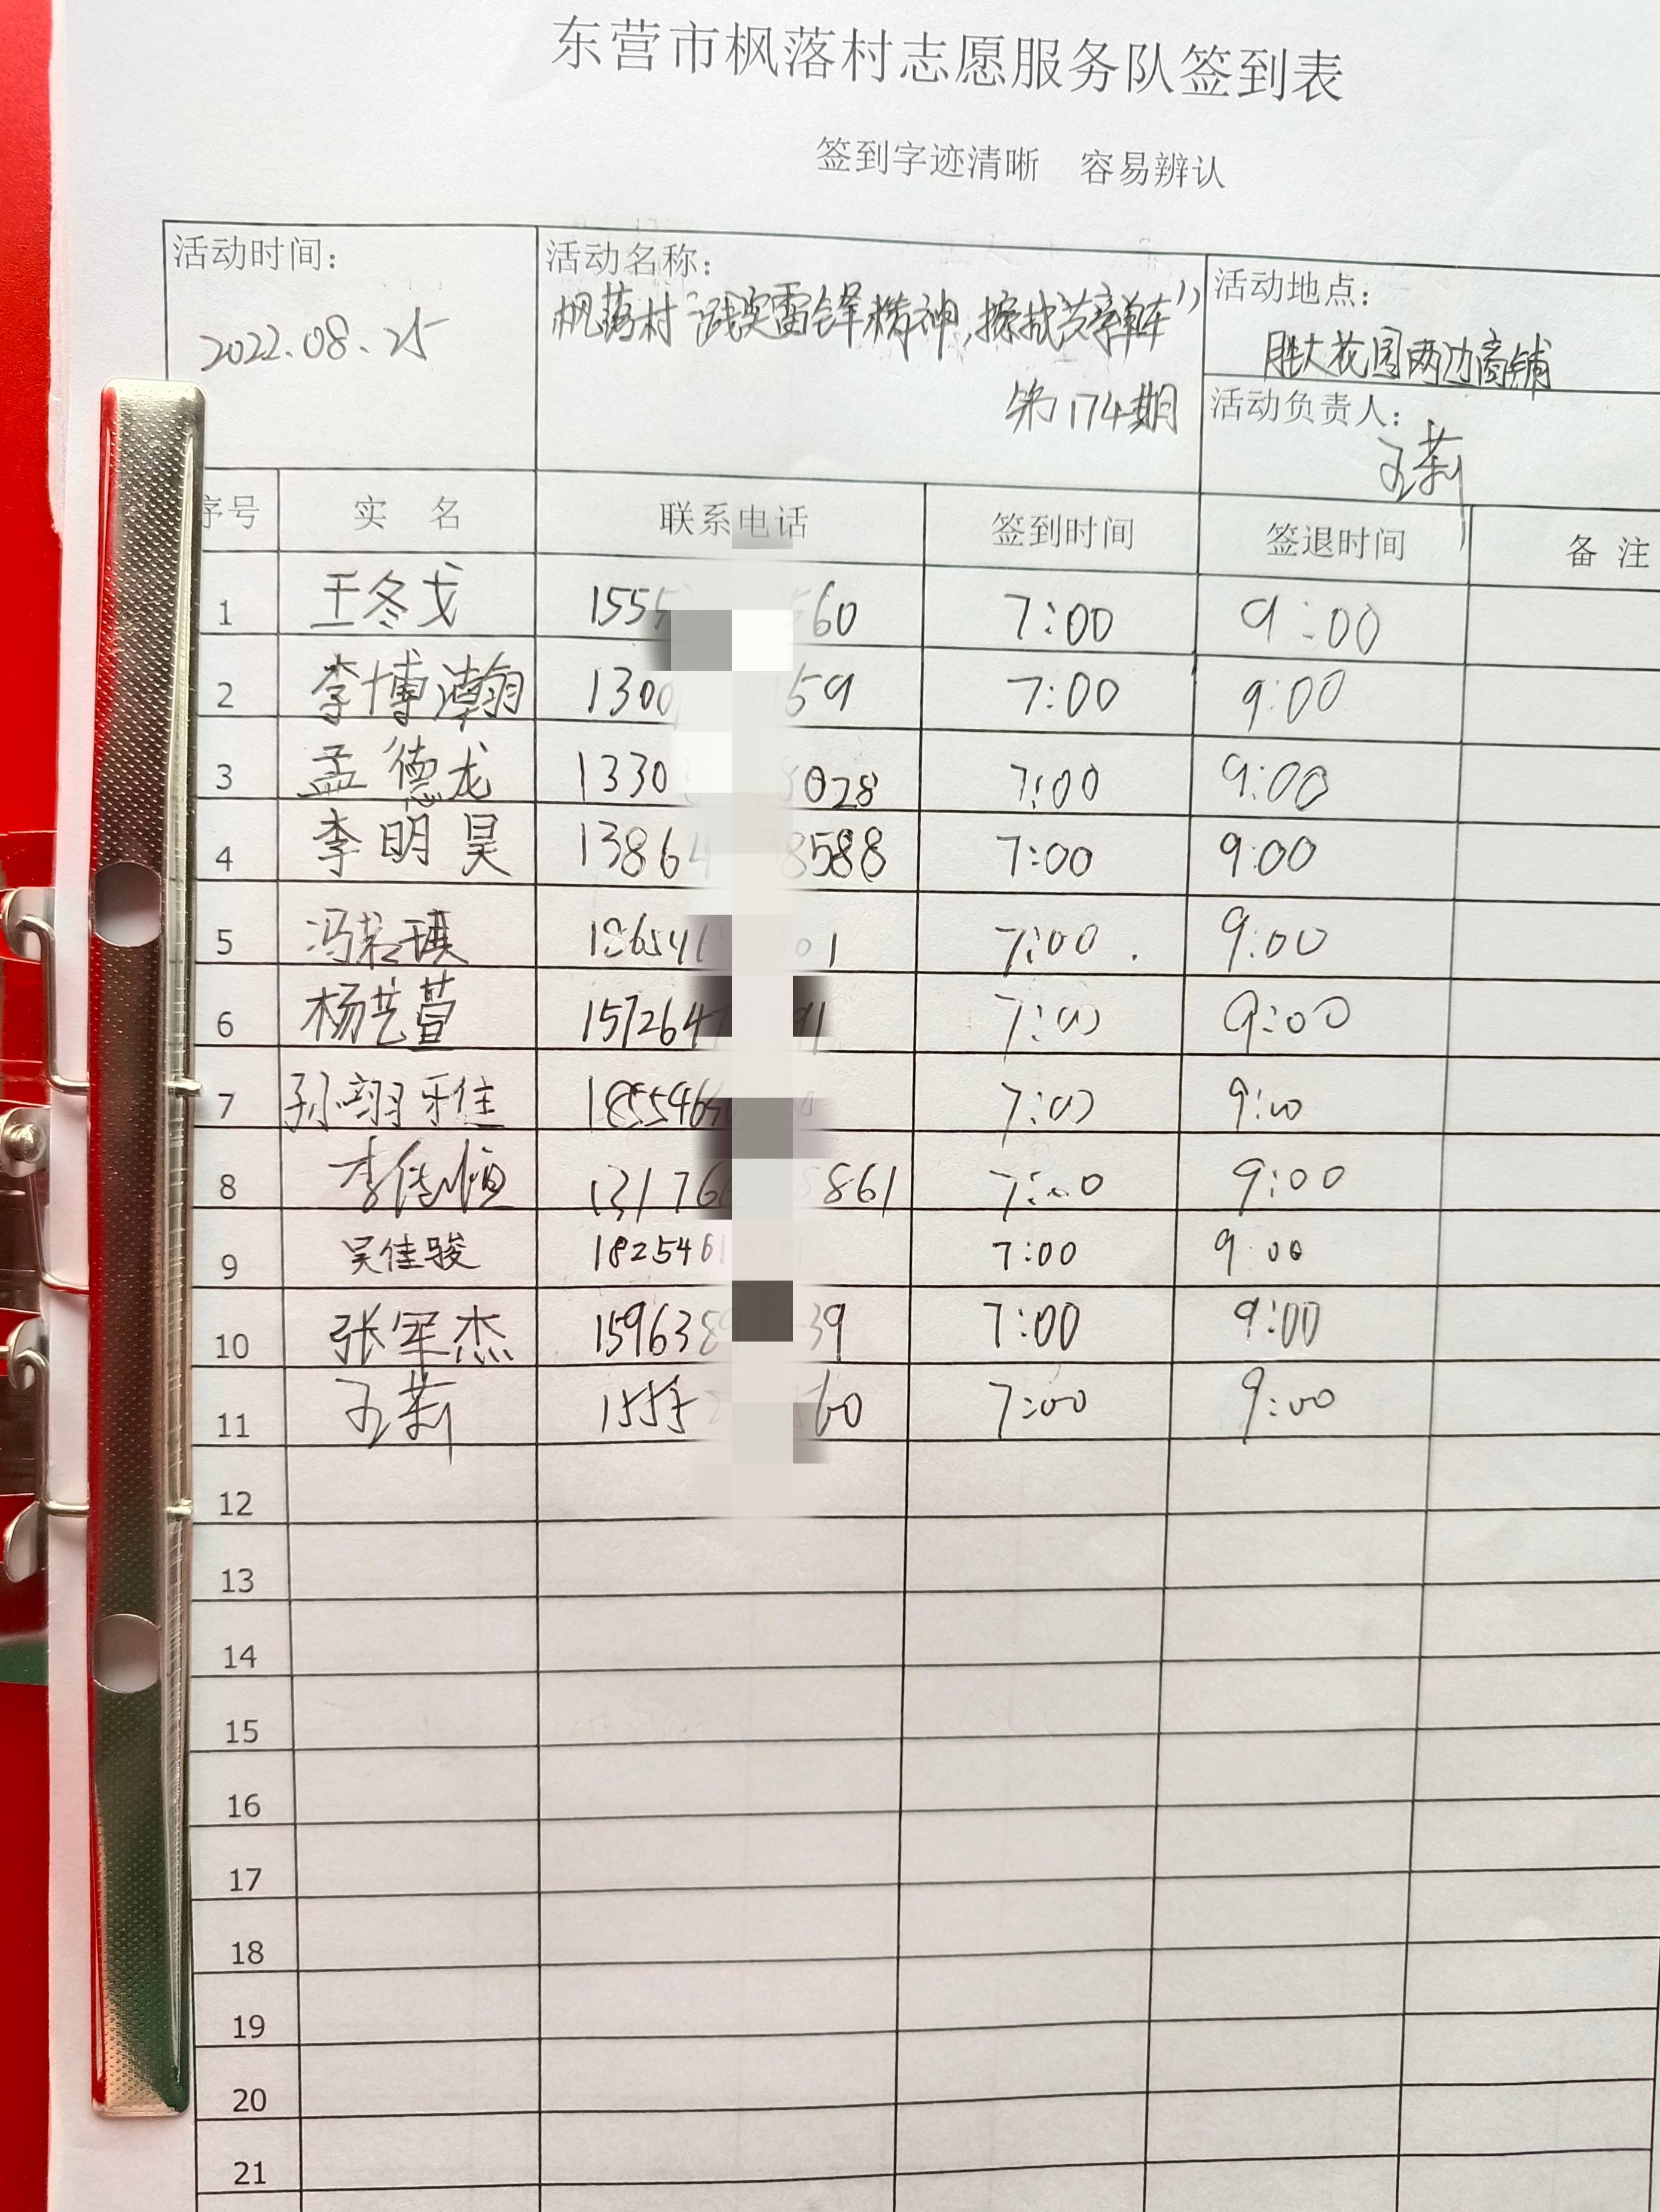 东营市枫落村志愿服务队签到表
签到字迹清晰 容易辨认
活动时间： 活动名称： 活动地点：
2022.08.25 枫落村“践实雷锋精神，擦拭共享单车” 胜大花园两边商铺
第174期 活动负责人：
王莉
序号 实 名 联系电话 签到时间 签退时间 备 注
1 王冬戈 155 60 7:00 9:00
2 李博瀚 130 59 7:00 9:00
3 孟德龙 1330 028 7:00 9:00
4 李明昊 1386 8588 7:00 9:00
5 冯若琪 186546 01 7:00 9:00
6 杨艺萱 1572647 91 7:00 9:00
7 孙翊雅 185546 7:00 9:00
8 李传恒 13176 861 7:00 9:00
9 吴佳骏 1825461 7:00 9:00
10 张军杰 159638 39 7:00 9:00
11 王莉 1555 60 7:00 9:00
12
13
14
15
16
17
18
19
20
21